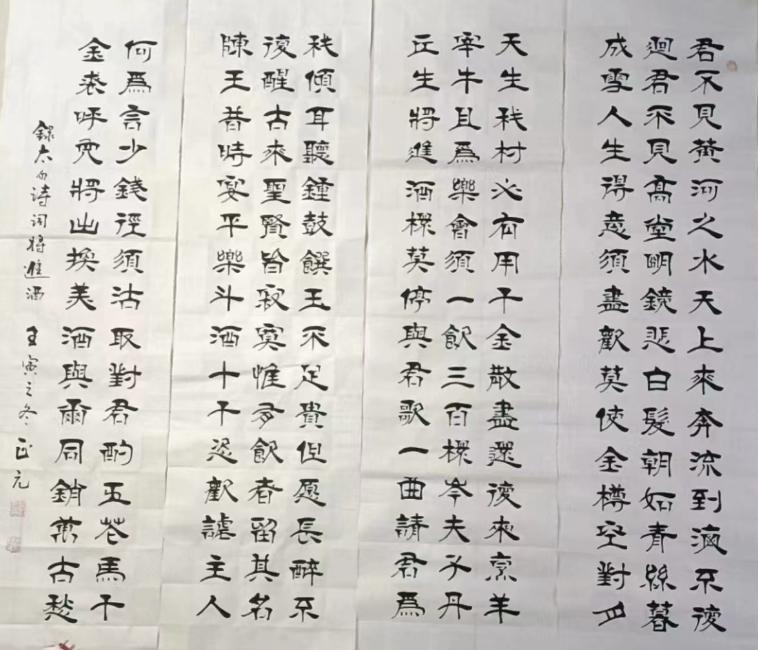 君不見黃河之水天上來奔流到海不復
迴君不見高堂明鏡悲白髮朝如青絲暮
成雪人生得意須盡歡莫使金樽空對月
天生我材必有用千金散盡還復來烹羊
宰牛且為樂會須一飲三百桮岑夫子丹
丘生將進酒桮莫停與君歌一曲請君為
我傾耳聽鍾鼓饌玉不足貴但愿長醉不
復醒古來聖賢皆寂寞惟有飲者留其名
陳王昔時宴平樂斗酒十千恣歡謔主人
何為言少錢徑須沽取對君酌五花馬千
金裘呼兒將出換美酒與爾同銷萬古愁
錄太白詩詞將進酒 壬寅之冬 正元